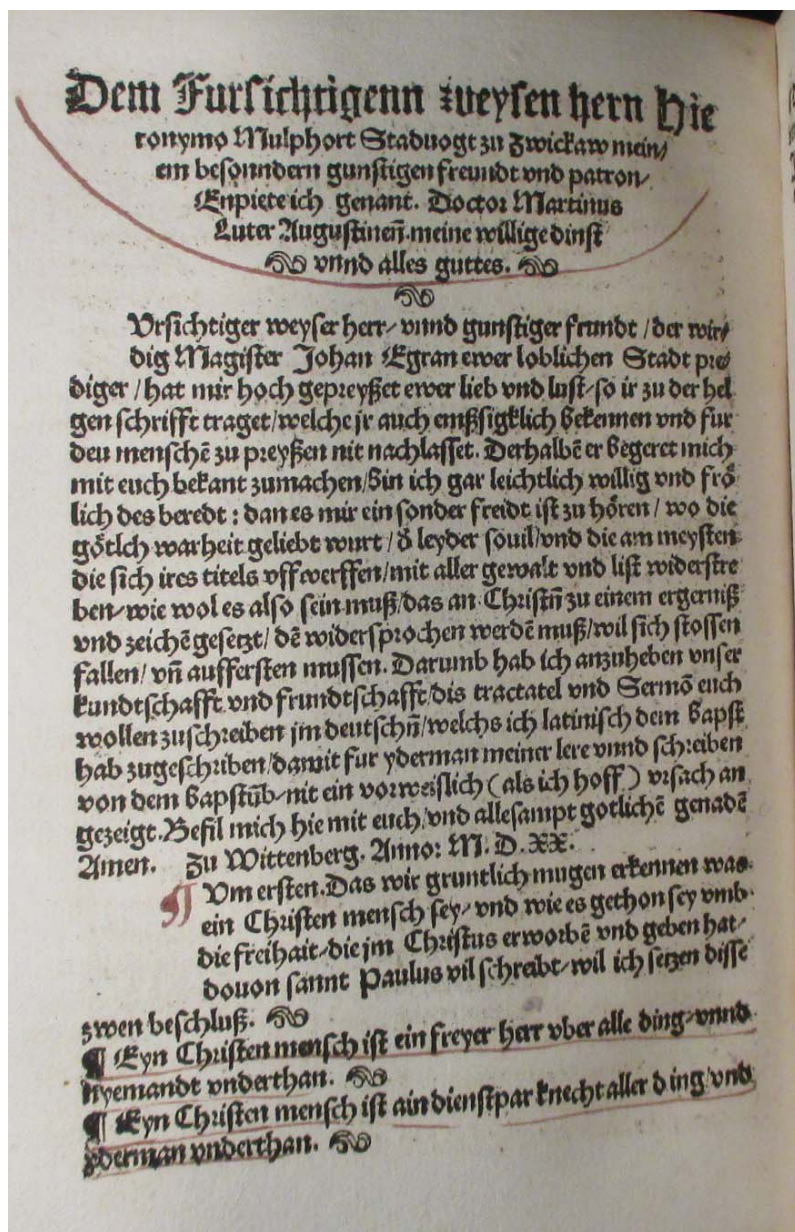 Dem Fursichtigenn weysen hern Hie
ronymo Mulphort Staduogt zu Zwickaw mein/
em besonndern gunstigen freundt vnd patron/
Enpiete ich genant. Doctor Martinus
Luter Augustineñ. meine willige dinst
vnnd alles guttes.
Vrsichtiger weyser herr/ vnnd gunstiger frundt / der wir/
dig Magister Johan Egran ewer loblichen Stadt pre/
diger / hat mir hoch gepreyßet ewer lieb vnd lust/ so ir zu der hei
gen schrifft traget/ welche jr auch emßsigklich bekennen vnd fur
deu menschē zu preyßen nit nachlasset. Derhalbē er begeret mich
mit euch bekant zumachen/ bin ich gar leichtlich willig vnd frö
lich des beredt : dan es mir ein sonder freidt ist zu hören / wo die
götlch warheit geliebt wurt / d̄ leyder souil/ vnd die am meysten
die sich ires titels vffwerffen/ mit aller gewalt vnd list widerstre
ben/ wie wol es also sein muß/ das an Christñ zu einem ergerniß
vnd zeichē gesetzt/ dē widersprochen werdē muß/ wil sich stossen
fallen/ vñ aufferste​n mussen. Darumb hab ich anzuheben vnser
kundtschafft vnd frundtschafft/ dis tractatel vnd Sermō euch
wollen zuschreiben jm deutschñ/ welchs ich latinisch dem bapst
hab zugeschriben/ damit fur yderman meiner lere vnnd schreiben
von dem bapstūb/ nit ein vorweislich ( als ich hoff ) vrsach an
gezeigt. Befil mich hie mit euch/ vnd allesampt gotlichē genadē
Amen. Zu Wittenberg. Anno: M. D. XX.
¶ Vm ersten. Das wir gruntlich mugen erkennen was
ein Christen mensch sey/ vnd wie es gethon sey vmb
die freihait/ die jm Christus erworbē vnd geben hat/
douon sannt Paulus vil schreibt/ wil ich setzen disse
zwen beschluß.
¶ Eyn Christen mensch ist ein freyer herr vber alle ding/ vnnd
nyemandt vnderthan.
¶ Eyn Christen mensch ist ain dienstpar knecht aller ding/ vnd
yderman vnderthan.